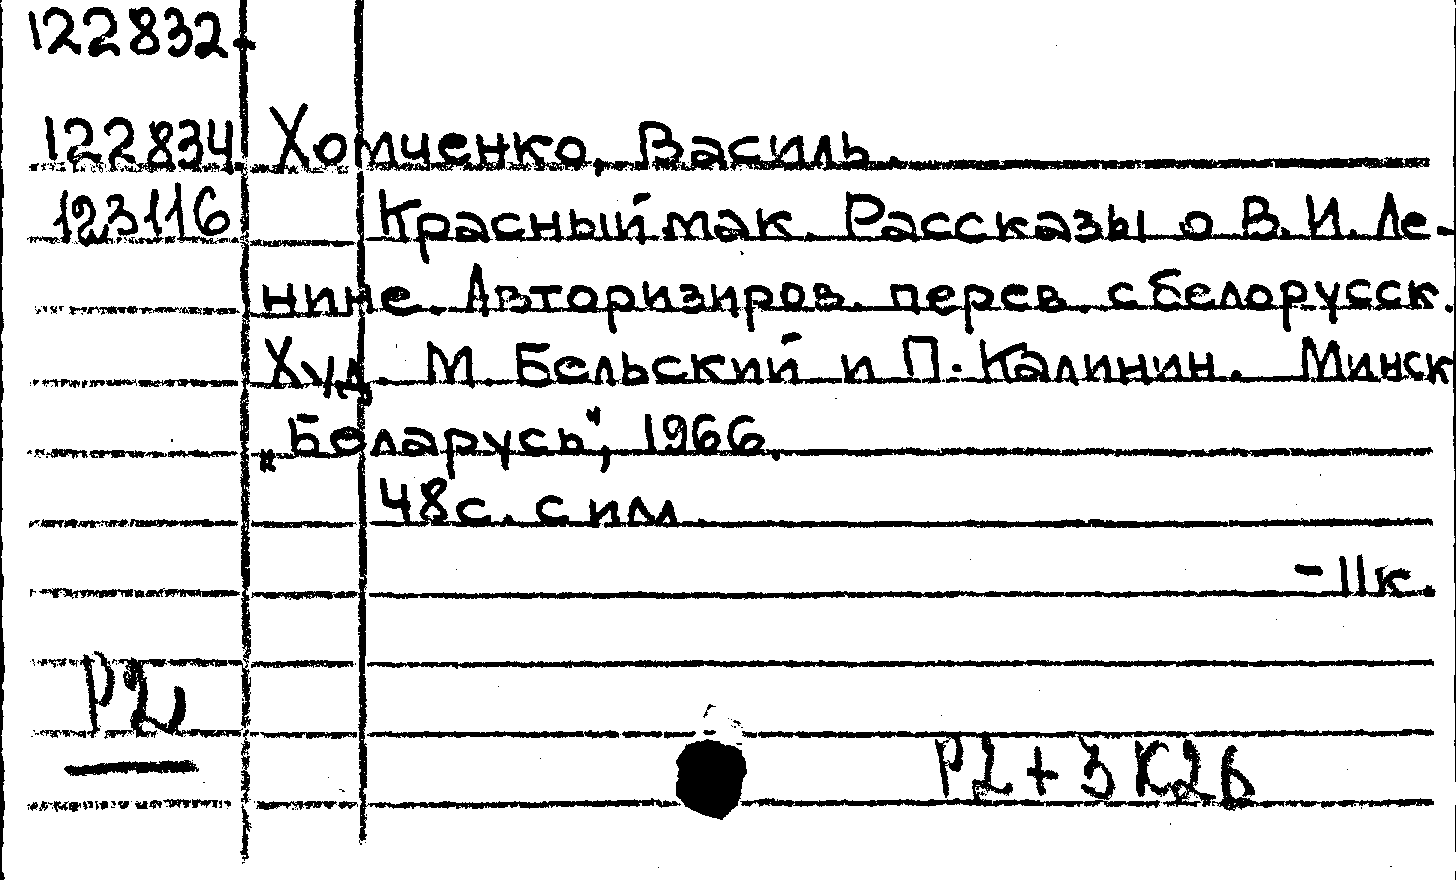 122832-
122834 Хомченко, Василь.
123116 Красный мак. Рассказы о В. И. Ле-
нине. Авторизиров. перев. с белорусск.
Худ. М. Бельский и П. Калинин. Минск
„Беларусь", 1966.
48с. с илл.
-11к.
Р2
Р2+3К26